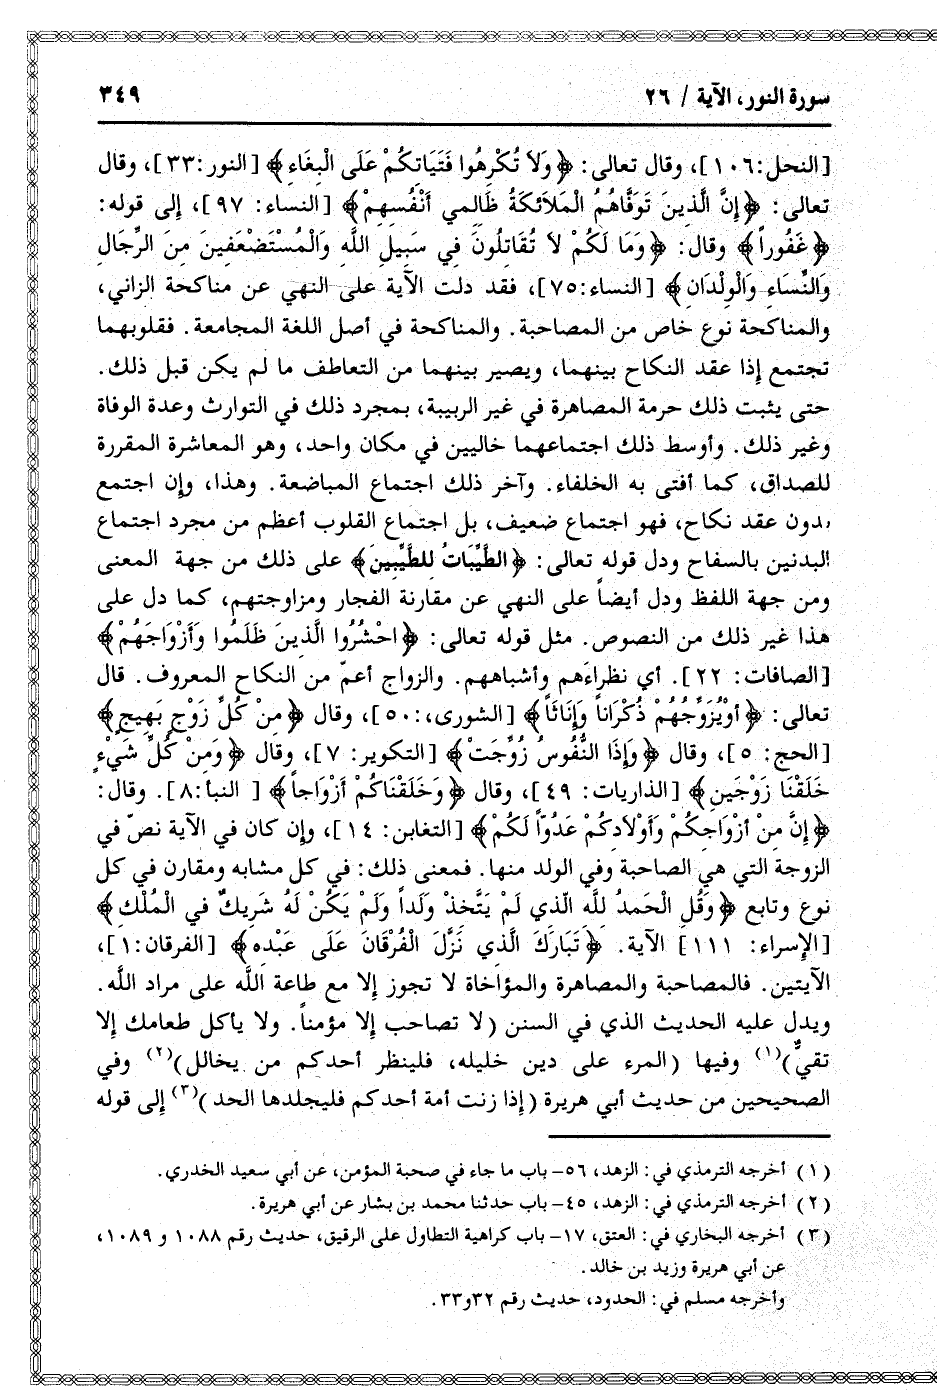 سورة النور، الآية / ٢٦
٣٤٩
[النحل:١٠٦]، وقال تعالى: ﴿وَلاَ تُكْرِهُوا فَتَيَاتِكُمْ عَلَى الْبِغَاءِ﴾ [النور:٣٣]، وقال
تعالى: ﴿إِنَّ الَّذِينَ تَوَفَّاهُمُ الْمَلاَئِكَةُ ظَالِمِي أَنْفُسِهِمْ﴾ [النساء: ٩٧]، إلى قوله:
﴿غَفُوراً﴾ وقال: ﴿وَمَا لَكُمْ لاَ تُقَاتِلُونَ فِي سَبِيلِ اللَّهِ وَالْمُسْتَضْعَفِينَ مِنَ الرِّجَالِ
وَالنِّسَاءِ وَالْوِلْدَانِ﴾ [النساء:٧٥]، فقد دلت الآية على النهي عن مناكحة الزاني،
والمناكحة نوع خاص من المصاحبة. والمناكحة في أصل اللغة المجامعة. فقلوبهما
تجتمع إذا عقد النكاح بينهما، ويصير بينهما من التعاطف ما لم يكن قبل ذلك.
حتى يثبت ذلك حرمة المصاهرة في غير الربيبة، بمجرد ذلك في التوارث وعدة الوفاة
وغير ذلك. وأوسط ذلك اجتماعهما خاليين في مكان واحد، وهو المعاشرة المقررة
للصداق، كما أفتى به الخلفاء. وآخر ذلك اجتماع المباضعة. وهذا، وإن اجتمع
بدون عقد نكاح، فهو اجتماع ضعيف، بل اجتماع القلوب أعظم من مجرد اجتماع
البدنين بالسفاح ودل قوله تعالى: ﴿الطَّيِّبَاتُ لِلطَّيِّبِينَ﴾ على ذلك من جهة المعنى
ومن جهة اللفظ ودل أيضاً على النهي عن مقارنة الفجار ومزاوجتهم، كما دل على
هذا غير ذلك من النصوص. مثل قوله تعالى: ﴿احْشُرُوا الَّذِينَ ظَلَمُوا وَأَزْوَاجَهُمْ﴾
[الصافات: ٢٢]. أي نظراءَهم وأشباههم. والزواج أعمّ من النكاح المعروف. قال
تعالى: ﴿أَوْيُزَوِّجُهُمْ ذُكْرَاناً وَإِنَاثَاً﴾ [الشورى،:٥٠]، وقال ﴿مِنْ كُلِّ زَوْجٍ بَهِيجٍ﴾
[الحج: ٥]، وقال ﴿وَإِذَا النُّفُوسُ زُوِّجَتْ﴾ [التكوير: ٧]، وقال ﴿وَمِنْ كُلِّ شَيْءٍ
خَلَقْنَا زَوْجَينِ﴾ [الذاريات: ٤٩]، وقال ﴿وَخَلَقْنَاكُمْ أَزْوَاجاً﴾ [ النبأ:٨]. وقال:
﴿إِنَّ مِنْ أَزْوَاجِكُمْ وَأَوْلاَدِكُمْ عَدُوّاً لَكُمْ﴾ [التغابن: ١٤]، وإن كان في الآية نصّ في
الزوجة التي هي الصاحبة وفي الولد منها. فمعنى ذلك: في كل مشابه ومقارن في كل
نوع وتابع ﴿وَقُلِ الْحَمدُ للَّهِ الّذي لَمْ يَتَّخِذْ وَلَداً وَلَمْ يَكُنْ لَهُ شَرِيكٌ في الْمُلْكِ﴾
[الإسراء: ١١١] الآية. ﴿تَبَارَكَ الَّذي نَزَّلَ الْفُرْقَانَ عَلَى عَبْدِهِ﴾ [الفرقان:١]،
الآيتين. فالمصاحبة والمصاهرة والمؤاخاة لا تجوز إلا مع طاعة اللَّه على مراد اللَّه.
ويدل عليه الحديث الذي في السنن (لا تصاحب إلا مؤمناً. ولا يأكل طعامك إلا
تقيٌّ)(١) وفيها (المرء على دين خليله، فلينظر أحدكم من يخالل)(٢) وفي
الصحيحين من حديث أبي هريرة (إذا زنت أمة أحدكم فليجلدها الحد)(٣) إلى قوله
(١) أخرجه الترمذي في: الزهد، ٥٦– باب ما جاء في صحبة المؤمن، عن أبي سعيد الخدري.
(٢) أخرجه الترمذي في: الزهد، ٤٥– باب حدثنا محمد بن بشار عن أبي هريرة.
(٣) أخرجه البخاري في: العتق، ١٧– باب كراهية التطاول على الرقيق، حديث رقم ١٠٨٨ و ١٠٨٩،
عن أبي هريرة وزيد بن خالد.
وأخرجه مسلم في: الحدود، حديث رقم ٣٢و٣٣.